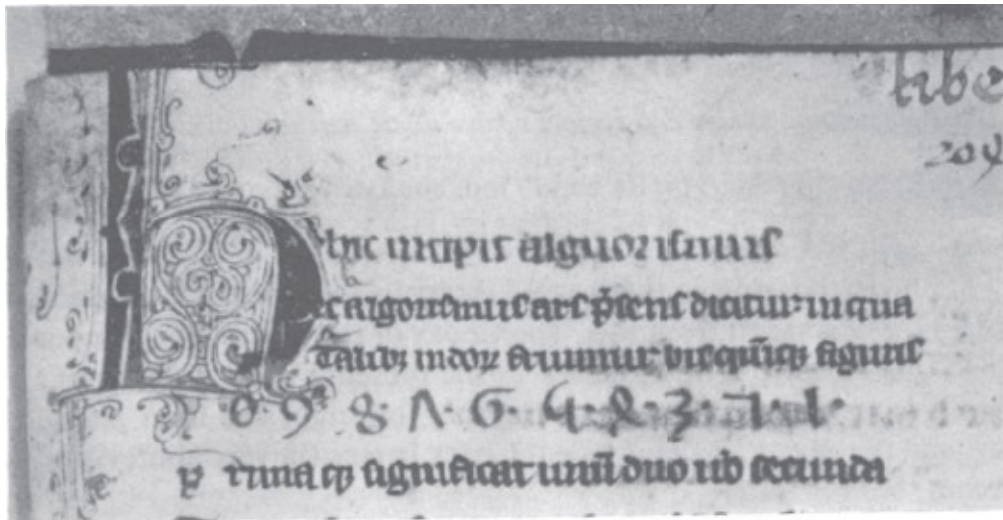 libe
204
hic incipit alguorismus
Hec algorismus ars p̄sens dicitur in qua
Talibꝫ indoꝝ fruimur bis quīqꝫ figuris
0· 9 8· 7· 6· 5· 4· 3· 2· 1·
P rima qꝫ significat unū duo u͛o secunda